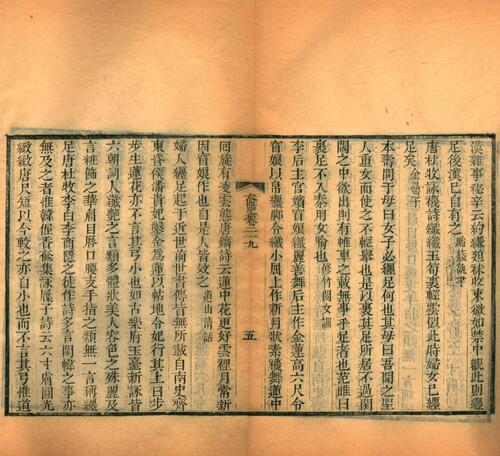 漢雜事秘辛云約縑廹袜收束微如禁中觀此則纒
足後漢已自有之
唐杜牧詠襪詩纖纖玉筍裹輕雲似此時婦女已纒
足矣
本壽問于母曰女子必纒足何也其母曰吾聞之聖
人重女而使之不輕舉也是以裹其足所居不過閨
閫之中欲出則有帷車之載無事乎足者也范雎曰
裹足不入秦用女喻也 修竹閣女訓
李后主宮嬪窅娘纖麗善舞后主作金蓮高六尺令
窅娘以帛纒脚令纖小屈上作新月狀素襪舞蓮中
回旋有凌雲態唐鎬詩云蓮中花更好雲裡月常新
因窅娘作也自是人皆效之 道山清話
婦人纒足起于近世前世書傳皆無所載自南史齊
東昏侯潘貴妃鑿金為蓮以帖地令妃行其上曰步
步生蓮花亦不言其弓小也如古樂府玉臺新詠皆
六朝詞人纖艶之言類多體狀美人容色之殊麗及
言粧飾之華眉目唇口腰支手指之類無一言稱纒
足唐杜牧李白李商隱之徒作詩多言閨幃之事亦
無及之者惟韓偓香奩集詠屧子詩云六寸膚圓光
緻緻唐尺短以今較之亦自小也而不言其弓惟道
卷二 九
五